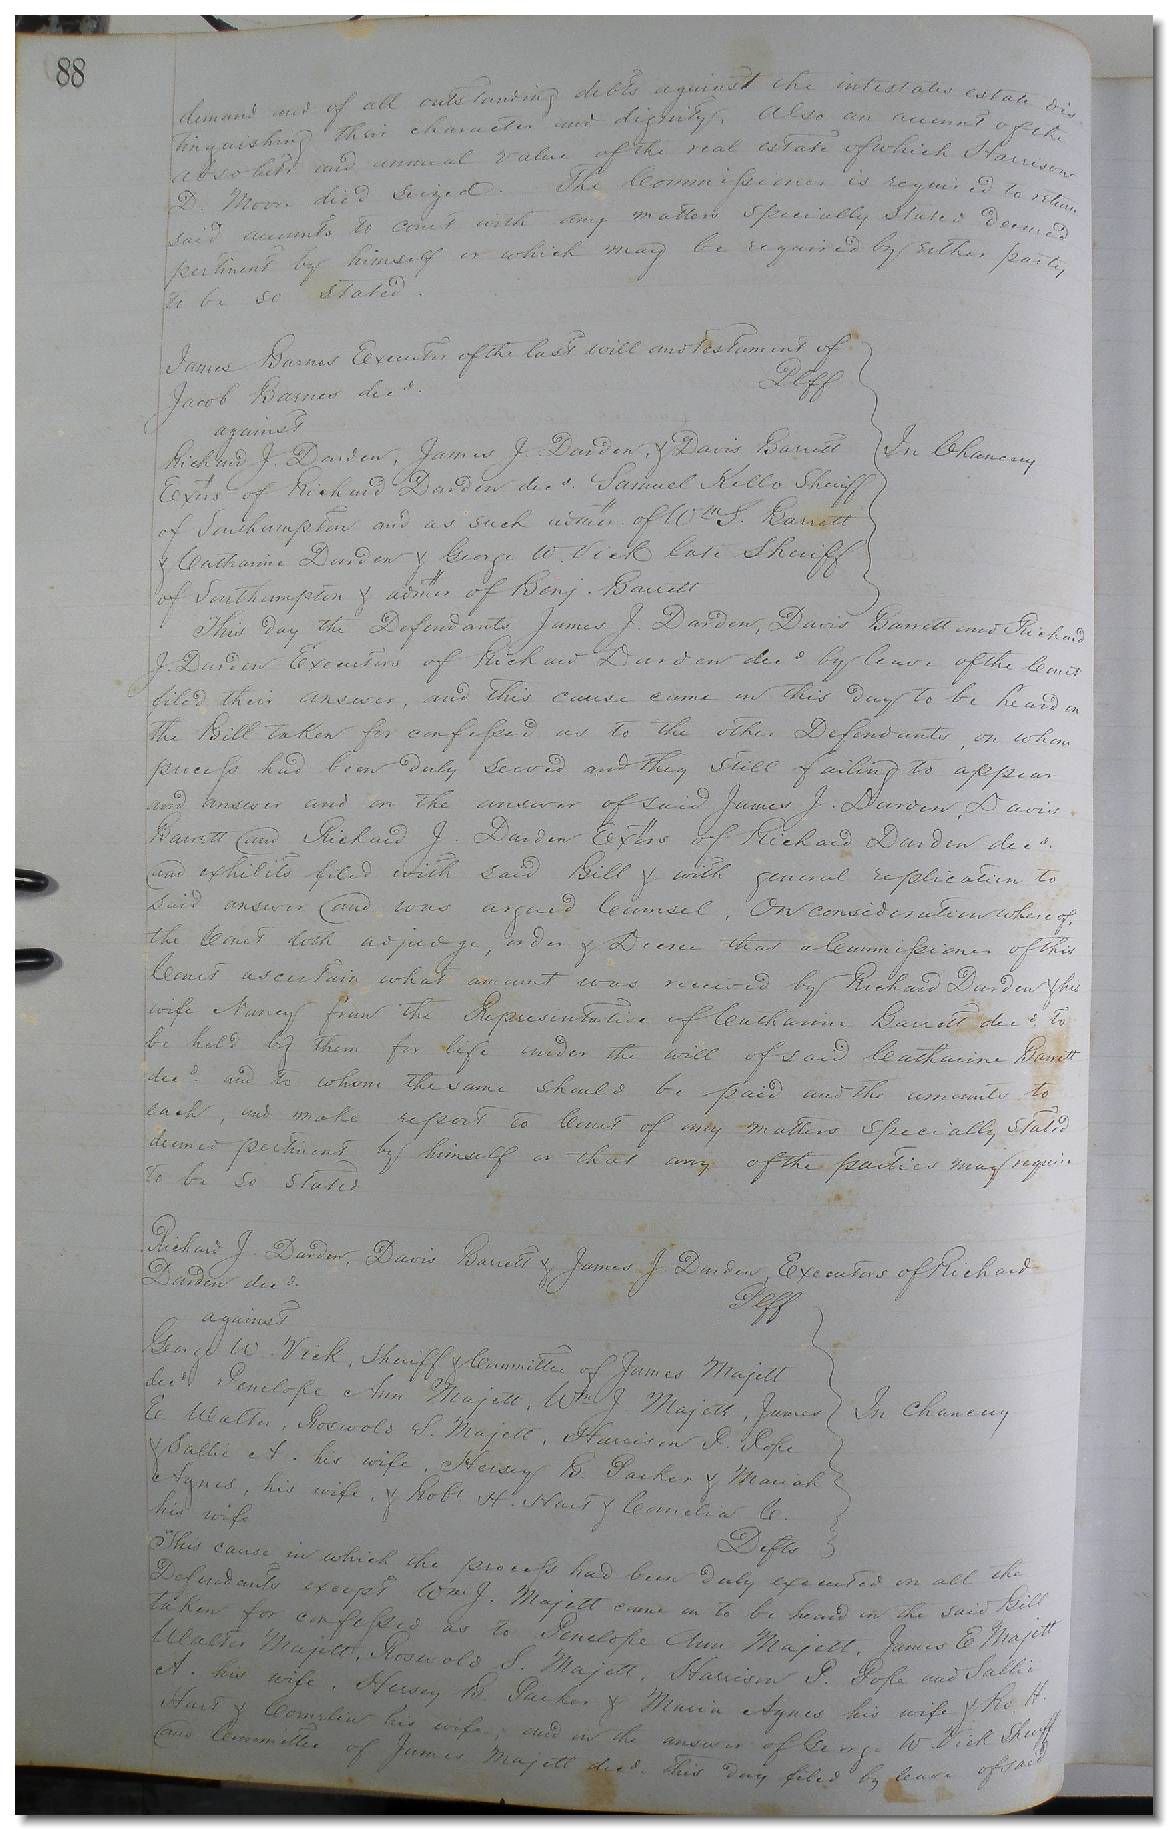 88
demand and of all outstanding debts against the intestates estate dis-
tinguishing their character and dignity. Also an account of the
absolute and annual value of the real estate of which Harrison
D. Moore died seized. The Commissioner is required to return
said accounts to court with any matters specially stated deemed
pertinent by himself or which may be required by either party
to be so stated.
James Barnes Executor of the last will and testament of
Jacob Barnes decd. Plff
against
Richard J. Darden, James J. Darden, & Davis Barrett
Exors of Richard Darden decd. Samuel Kello Sheriff
of Southampton and as such admr. of Wm S. Barrett
& Catharine Darden & George W. Vick late Sheriff
of Southampton & admr of Benj. Barrett
In Chancery
This day the Defendants James J. Darden, Davis Barrett and Richard
J. Darden Executors of Richard Darden decd by leave of the Court
filed their answer, and this cause came on this day to be heard on
the Bill taken for confessed as to the other Defendants, on whom
process had been duly served and they still failing to appear
and answer and on the answer of said James J. Darden, Davis
Barrett and Richard J. Darden Exors of Richard Darden decd.
and exhibits filed with said Bill & with general replication to
said answer and was argued Counsel. On consideration whereof,
the Court doth adjudge, order & Decree that a Commissioner of this
Court ascertain what amount was received by Richard Darden & his
wife Nancy from the Representative of Catharine Barrett decd. to
be held by them for life under the will of said Catharine Barrett
decd. and to whom the same should be paid and the amounts to
each, and make report to Court of any matters specially stated
deemed pertinent by himself or that any of the parties may require
to be so stated
Richard J. Darden, Davis Barrett & James J. Darden, Executors of Richard
Darden decd. Plff
against
George W. Vick, Sheriff & Committee of James Majett
decd Penelope Ann Majett, Wm J Majett, James
E Walter, Roswold S. Majett, Harrison P. Pope
& Sallie A. his wife, Hersey B. Parker & Mariah
Agnes, his wife, & Robt H. Hart & Cornelia C.
his wife Defts
In Chancery
This cause in which the process had been duly executed on all the
Defendants except Wm J. Majett came on to be heard on the said Bill
taken for confessed as to Penelope Ann Majett, James E Majett
Walter Majett, Roswold S. Majett, Harrison P. Pope and Sallie
A. his wife, Hersey B. Parker & Maria Agnes his wife & Ro H.
Hart & Cornelia his wife; and on the answer of George W. Vick Sheriff
and Committee of James Majett decd. this day filed by leave of said